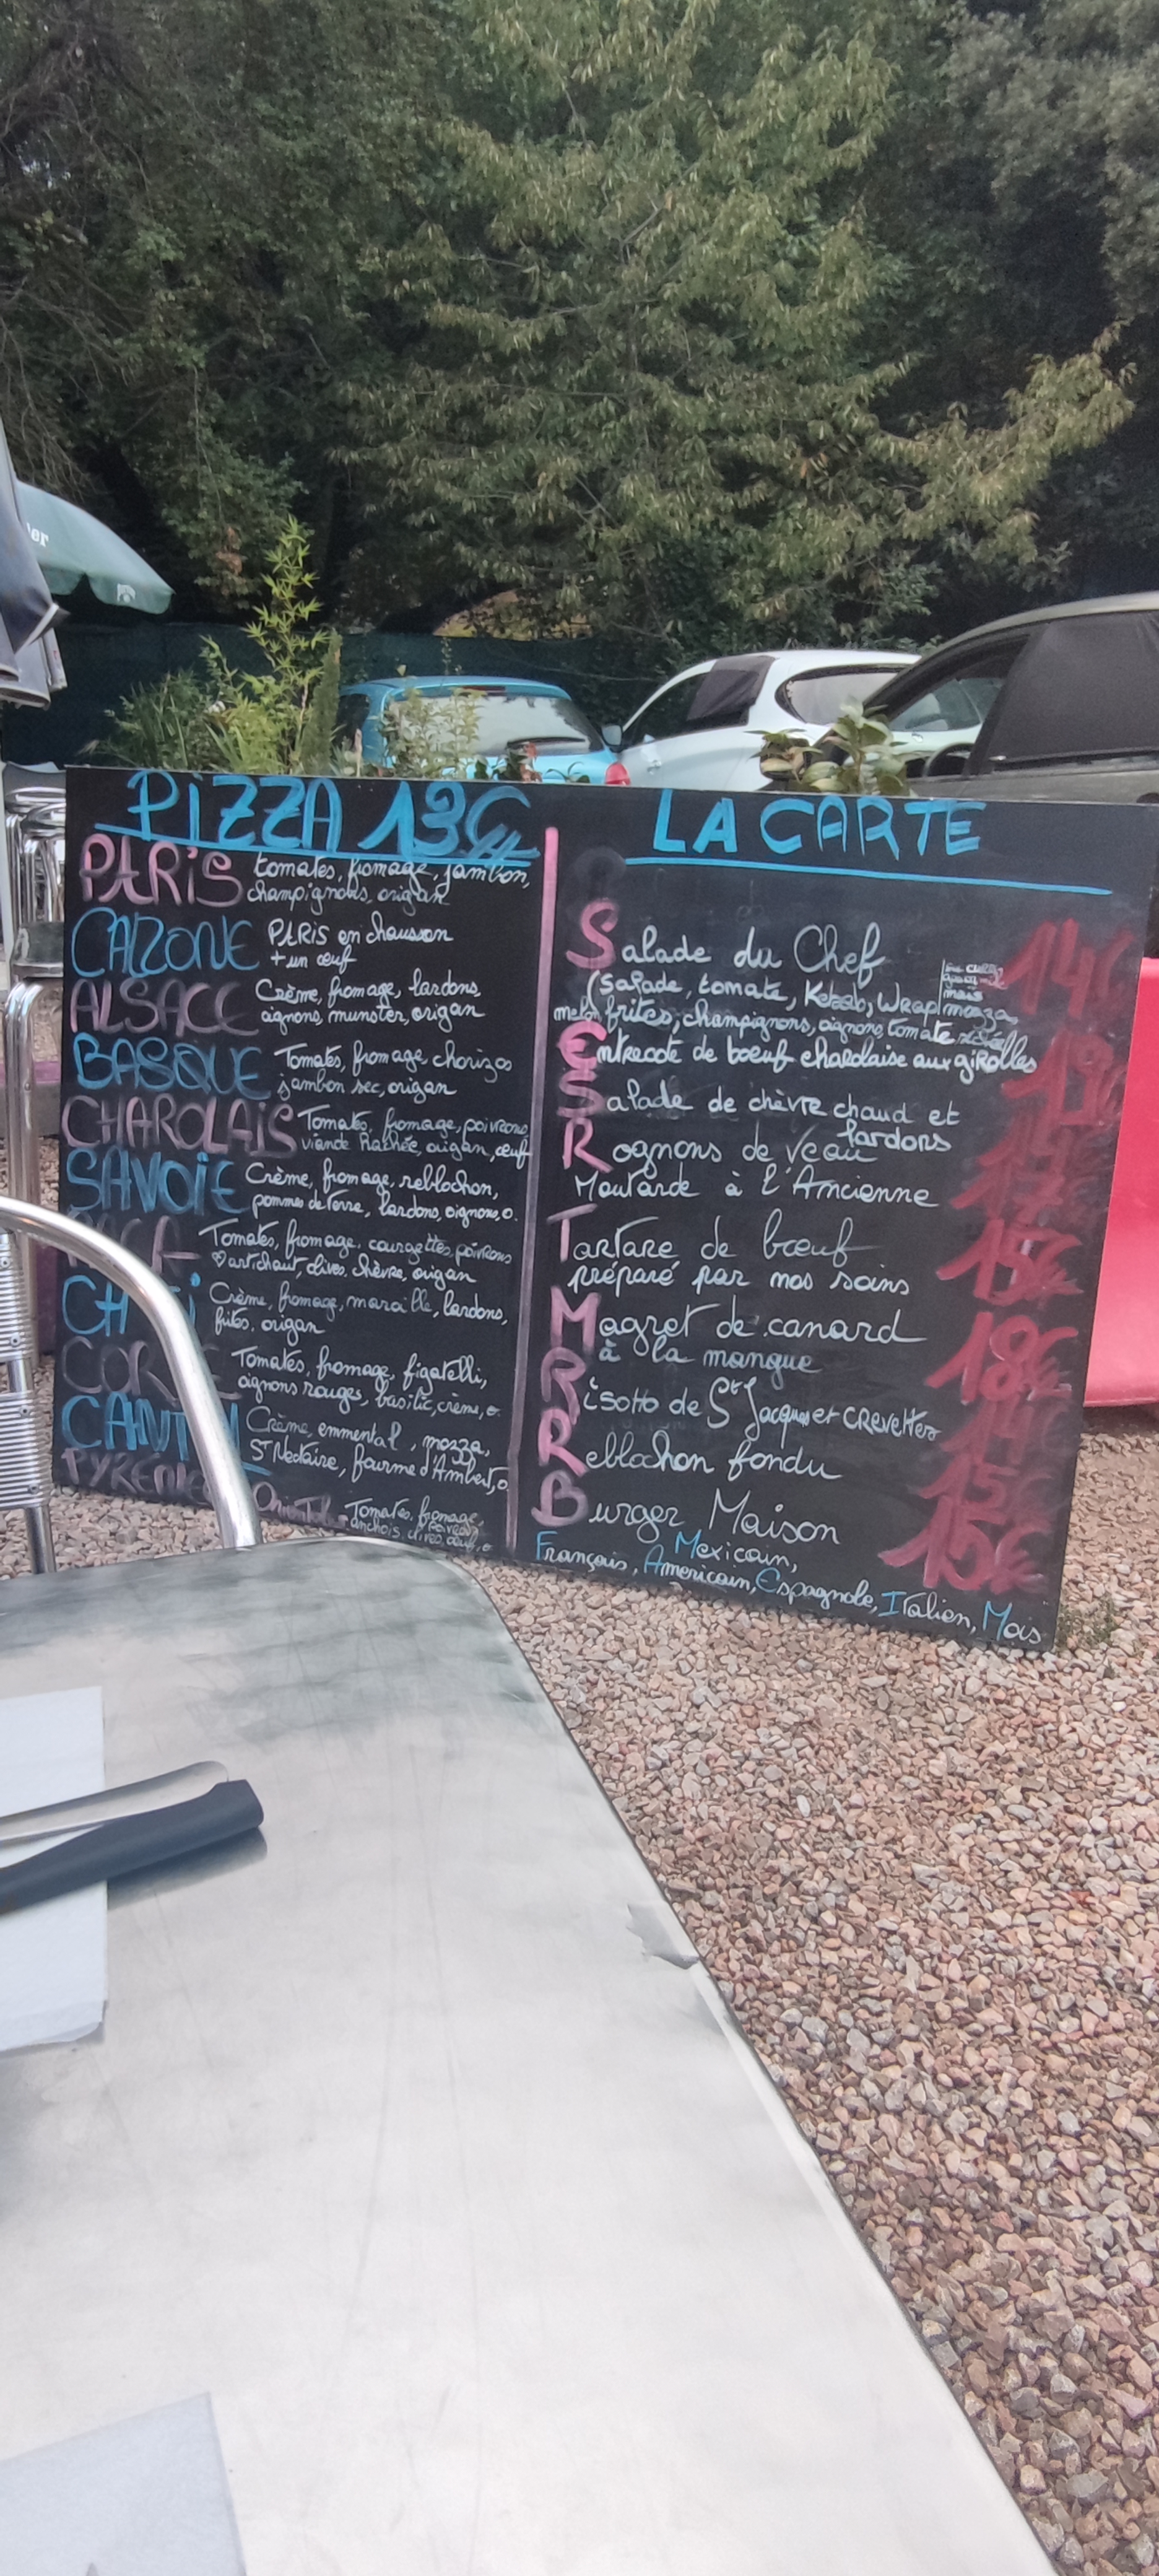 PIZZA 13€
PARIS tomates, fromage, jambon,
champignons, origan
CALZONE PARIS en chausson
+ un œuf
ALSACE Crème, fromage, lardons,
oignons, munster, origan
BASQUE Tomates, fromage chorizos
jambon sec, origan
CHAROLAIS Tomates, fromage, poivrons,
viande hachée, origan, œuf
SAVOIE Crème, fromage, reblochon,
pommes de terre, lardons, oignons, o.
Tomates, fromage, courgettes, poivrons
♡ artichaut, olives, chèvre, origan
Crème, fromage, maroille, lardons,
frites, origan
Tomates, fromage, figatelli,
oignons rouges, basilic, crème, o.
Crème, emmental, mozza,
St Nectaire, fourme d'Ambert, o.
Tomates, fromage,
anchois, olives, œuf, o
LA CARTE
Salade du Chef 14€
(Salade, tomate, Kebab, Wrap
maïs
melon frites, champignons, oignons, tomate
Entrecote de bœuf charolaise aux girolles 19€
Salade de chèvre chaud et
lardons
Rognons de veau
Moutarde à l'Ancienne
Tartare de bœuf 15€
préparé par nos soins
Magret de canard 18€
à la mangue
Risotto de St Jacques et crevettes
Reblochon fondu 15€
Burger Maison 15€
Mexicain,
Français, Americain, Espagnole, Italien, Mais